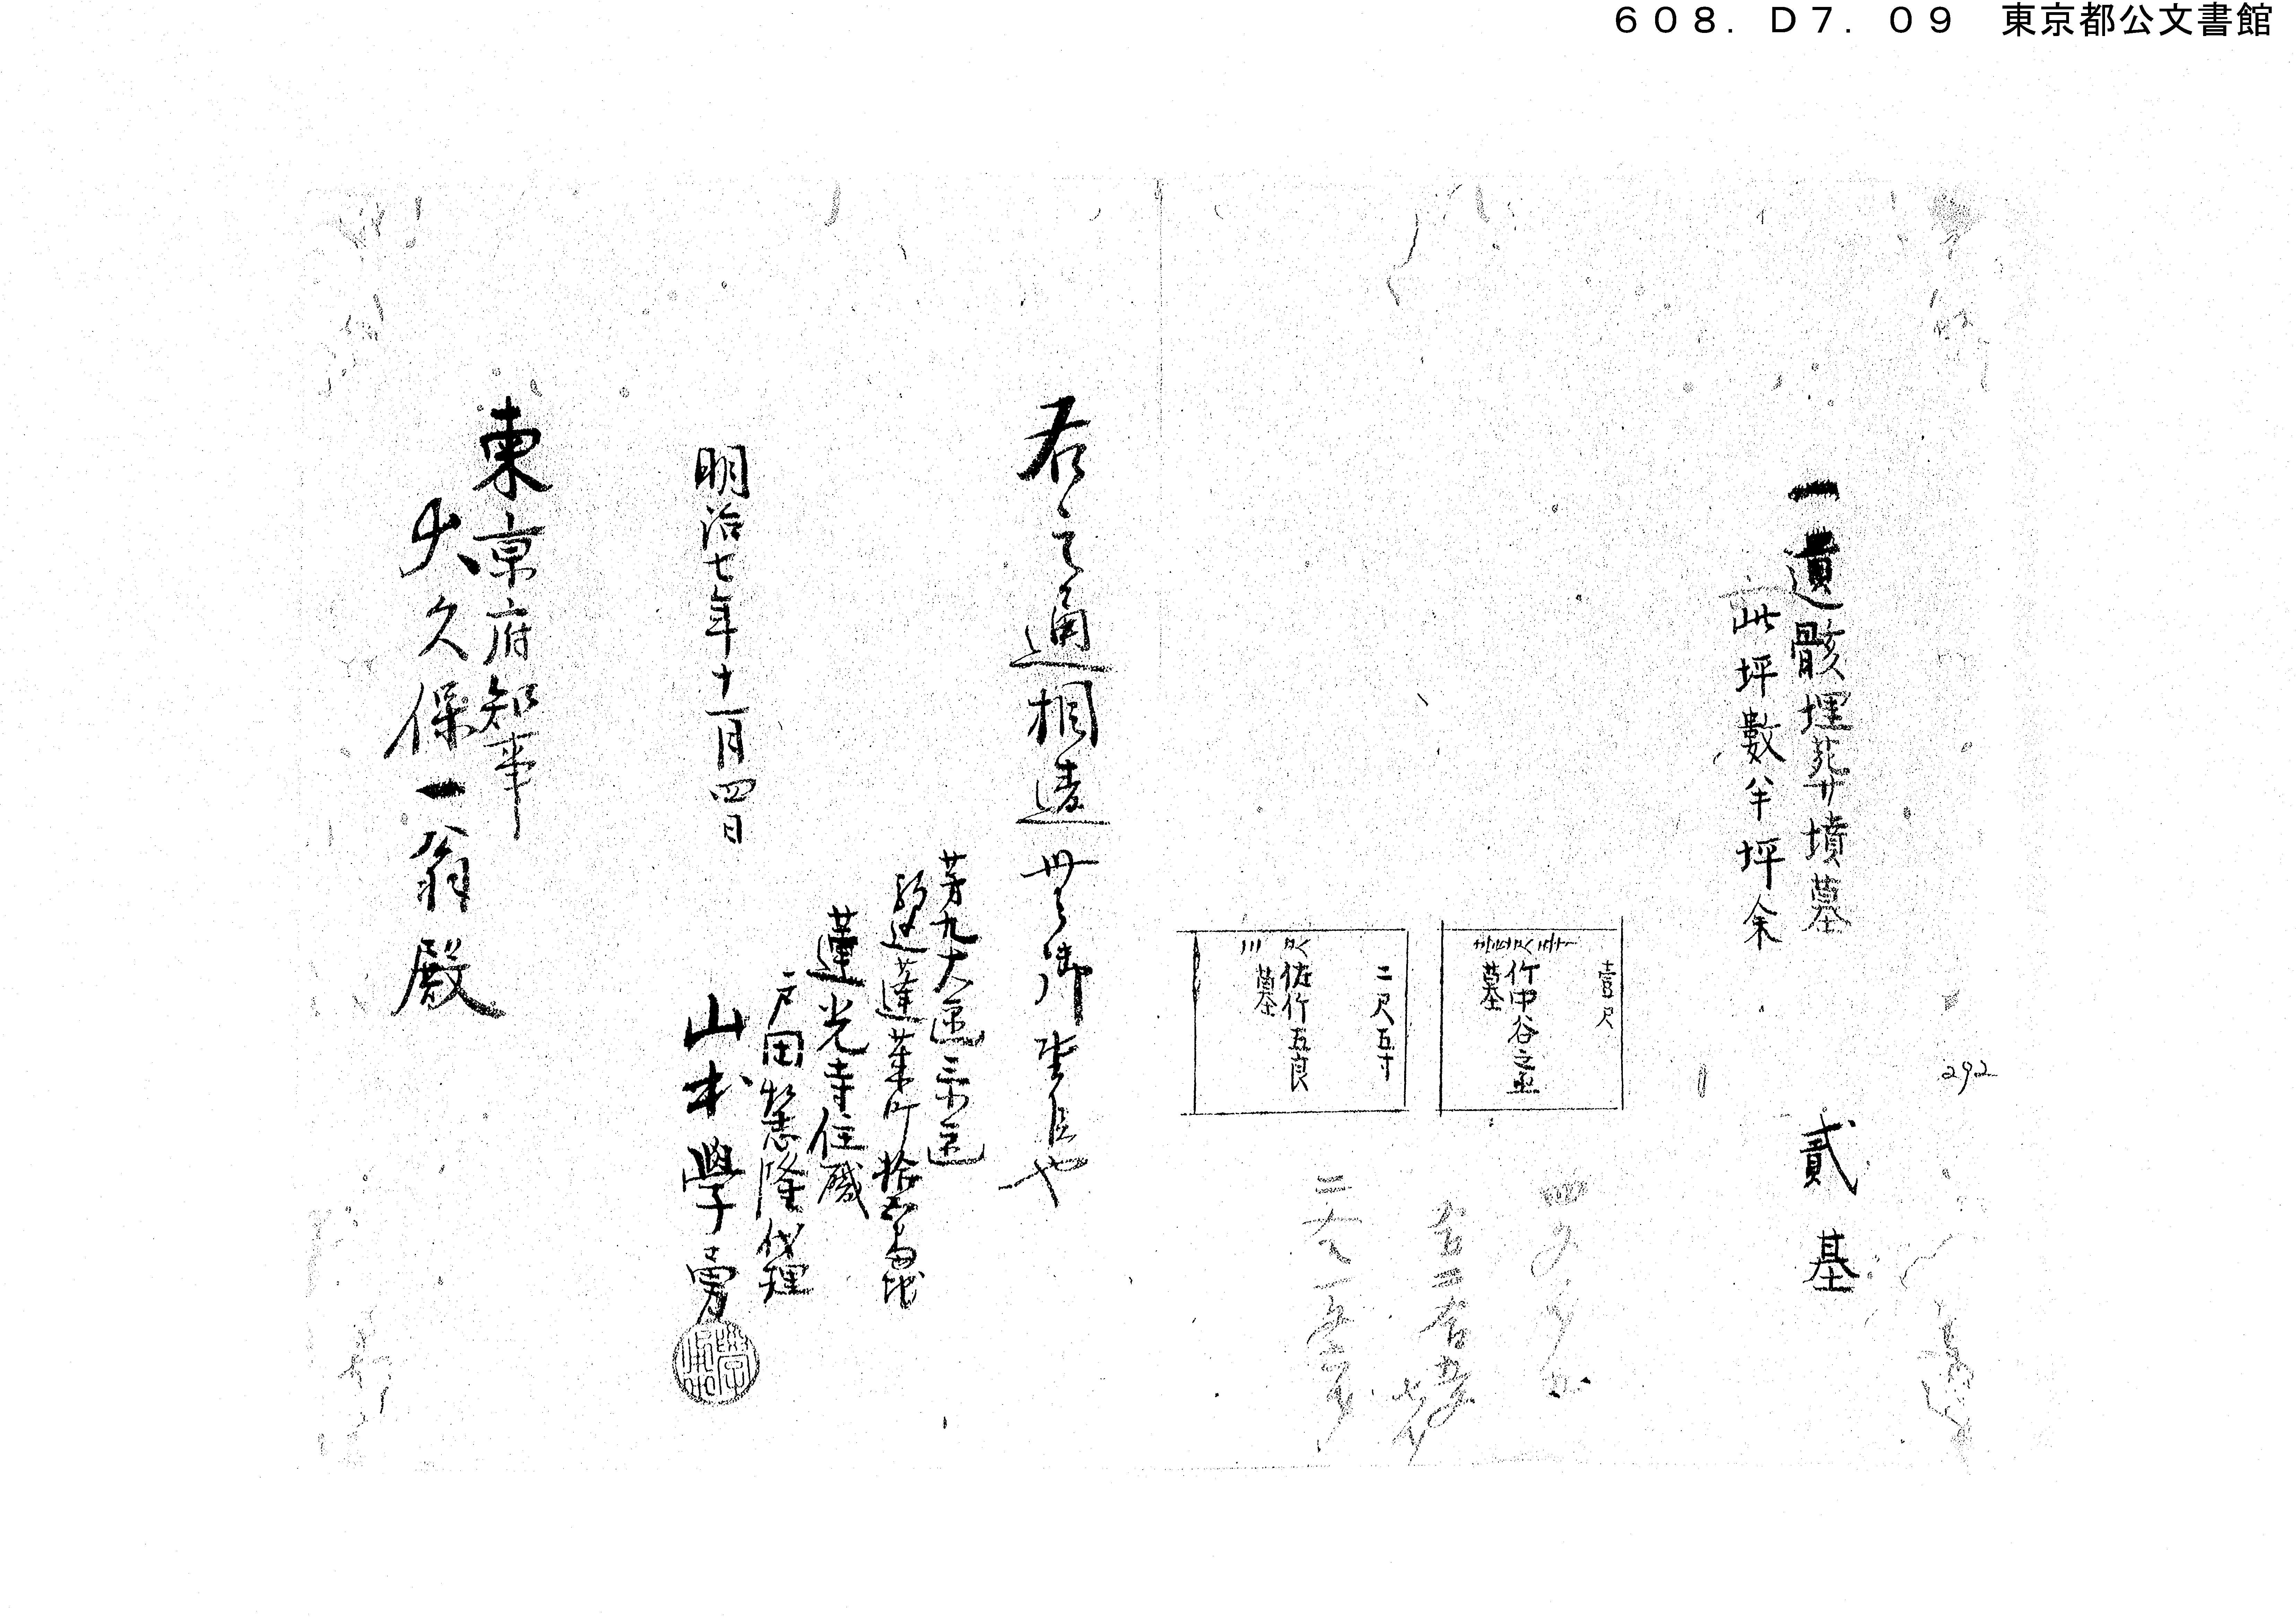 608. D7. 09 東京都公文書館
一遺骸埋葬墳墓 貳基
此坪數半坪余
292
壹尺
竹中谷之丞
墓
二尺五寸
佐竹五良
墓
右之通相違無御座候也
第九大區三小區
駒込蓬莱町拾六番地
蓮光寺住職
戸田
隆代理
山本學勇
明治七年十一月四日
東京府知事
大久保一翁殿